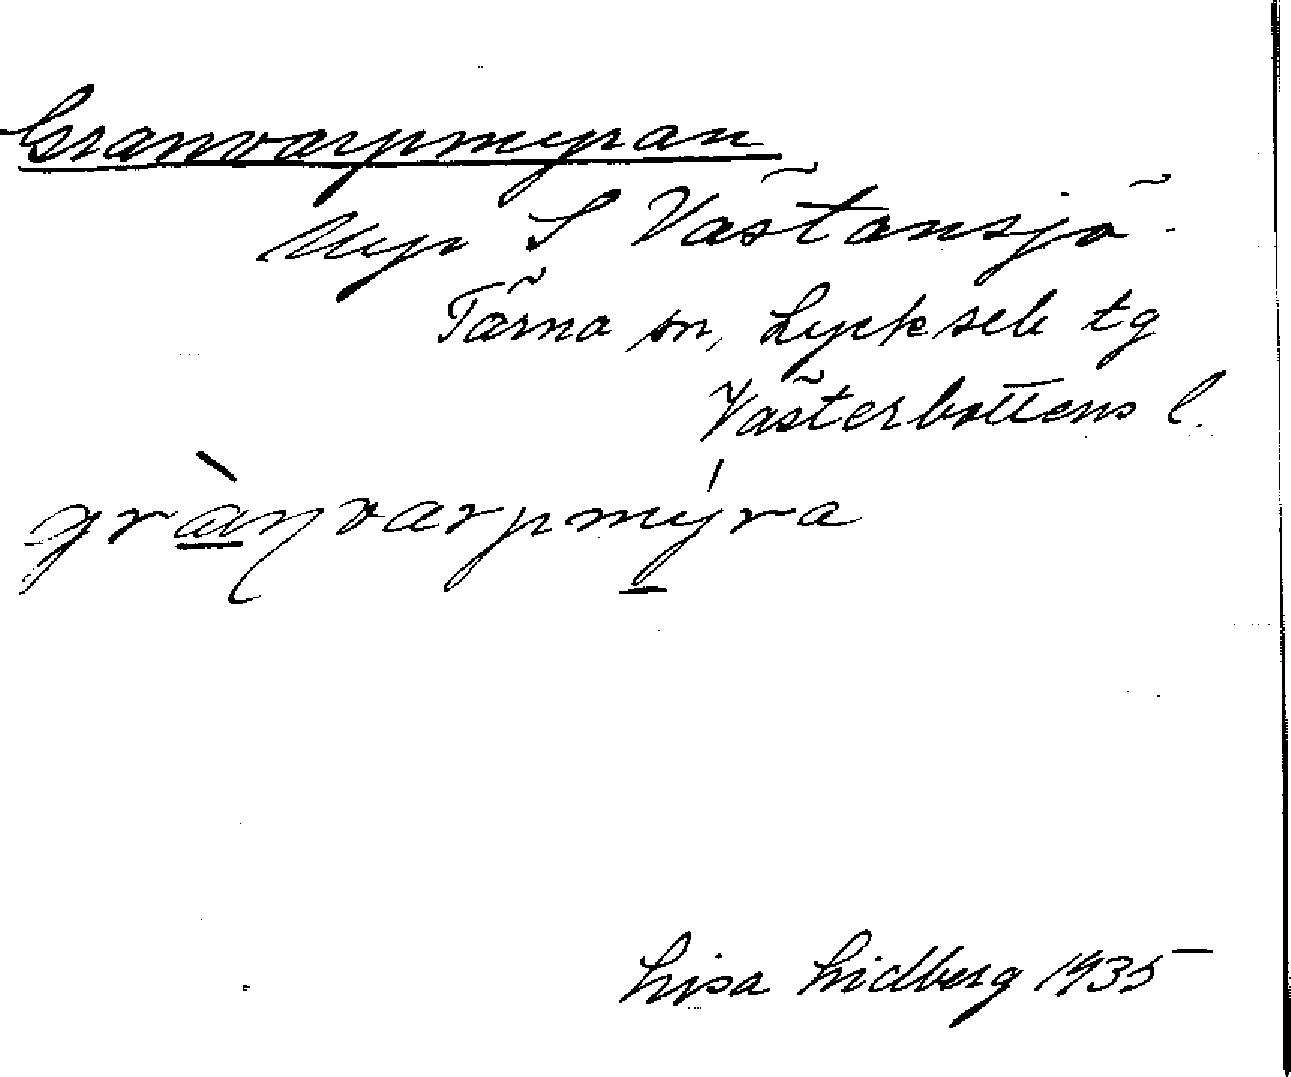 Granvarpmyran
Myr S Västansjö.
Tärna sn, Lycksele tg
Västerbottens l.
grànvarpmýra
Lisa Lidberg 1935